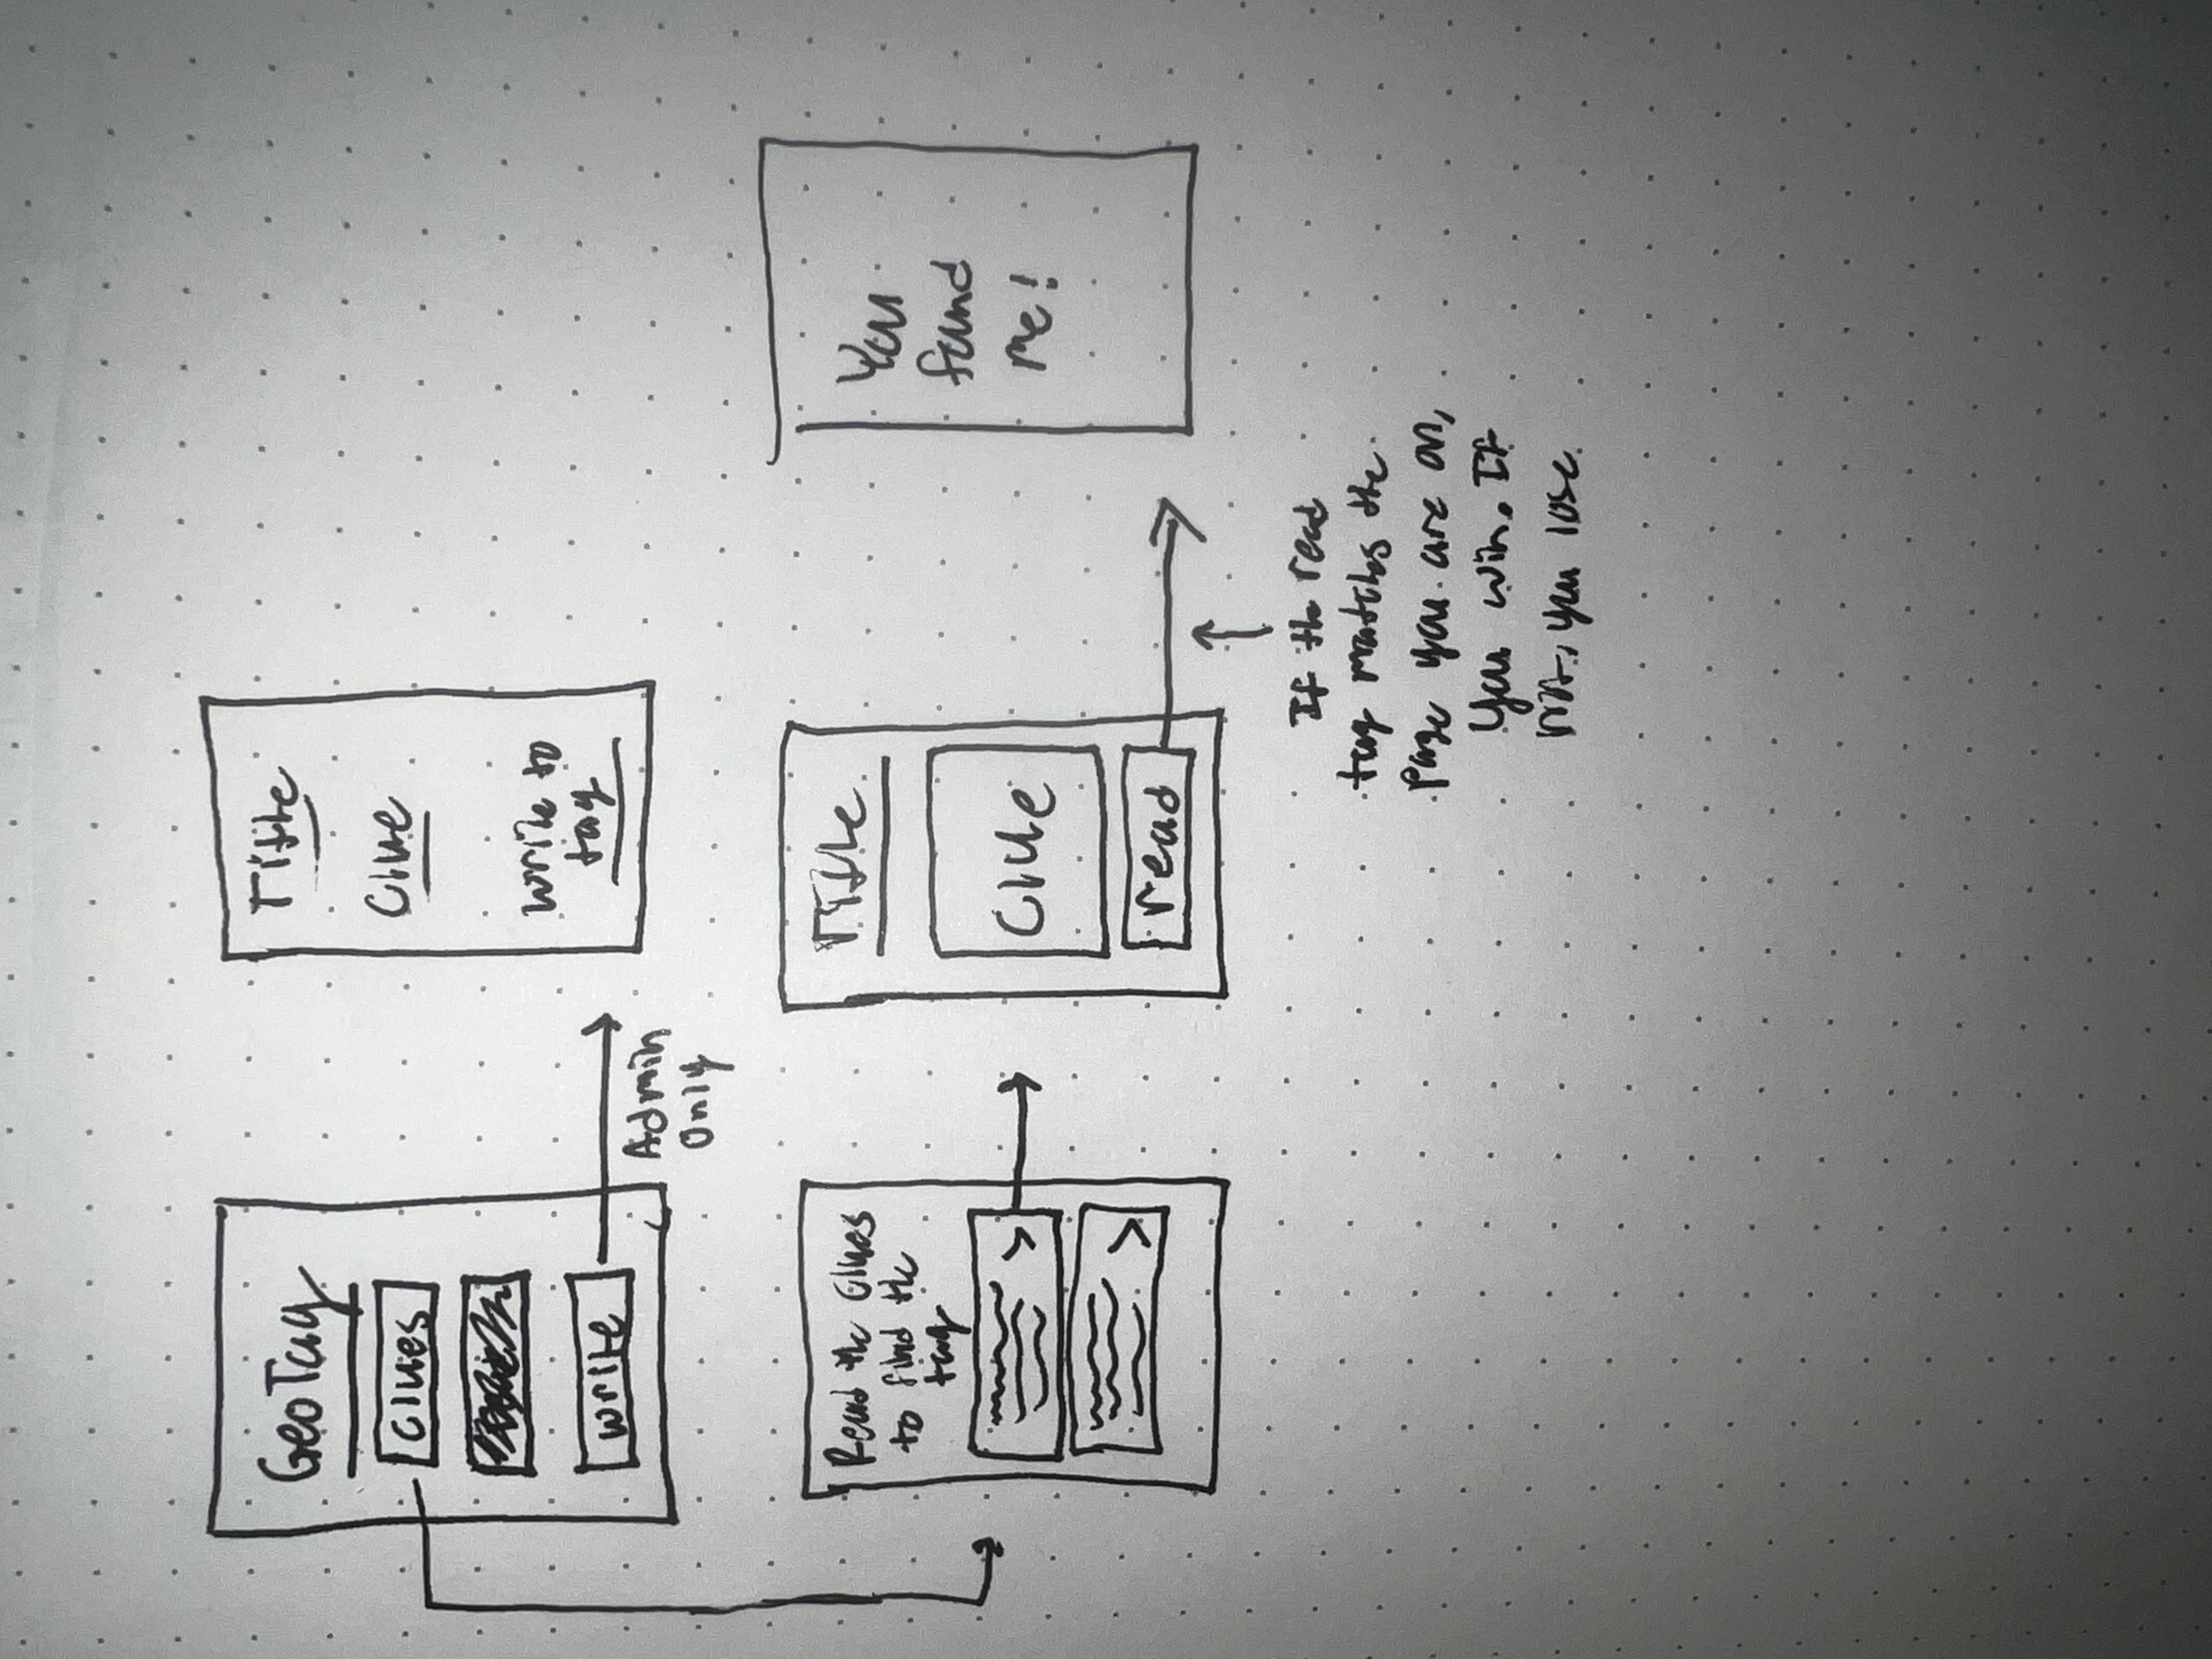 GeoTag
clues
write
Admin
Only
Title
Clue
write to
tag
Read the Clues
to find the
tag
Title
Clue
read
You
found
me!
If the read
tag matches the
page you are on,
you win. If
not, you lose.